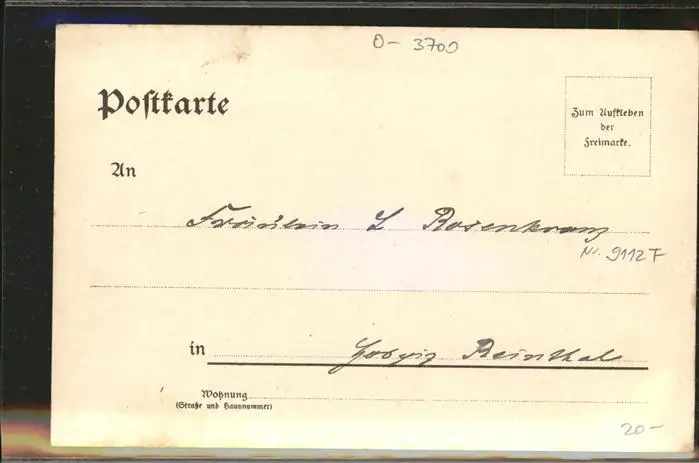 O- 3700
Postkarte
Zum Aufkleben
der
Freimarke.
An
Fräulein L Rosenkranz
Nr. 9112 F
in Reinthal
Wohnung
(Straße und Hausnummer)
20-